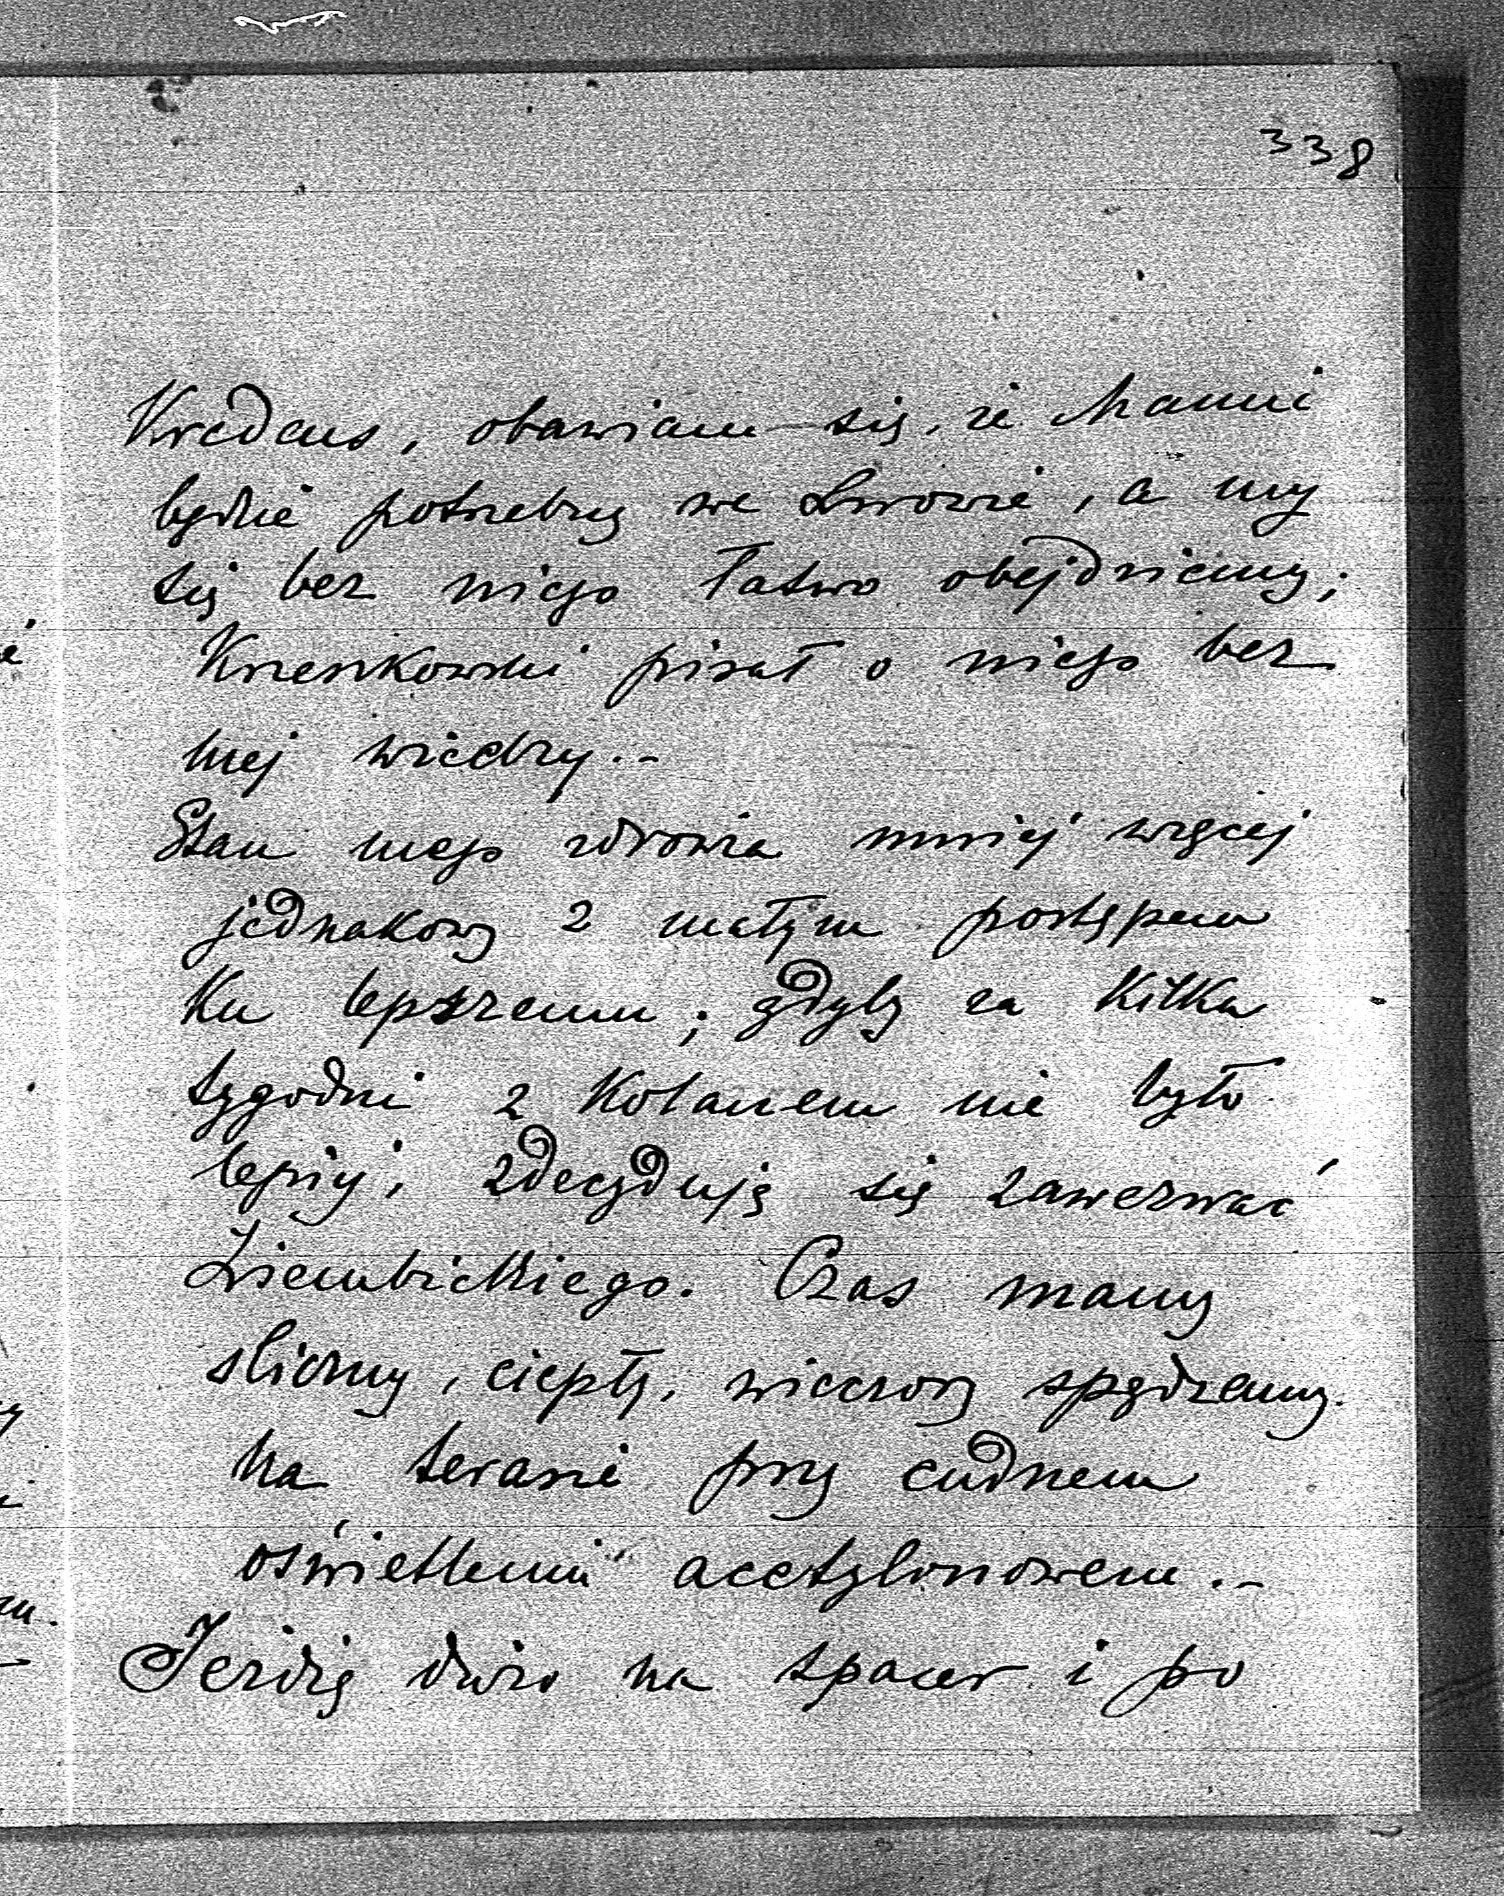 338
Kredens, obawiam się, że Mamie
będzie potrzebny we Lwowie, a my
się bez niego łatwo obejdziemy;
Krzeszkowski pisał o niego bez
mej wiedzy. -
Stan mego zdrowia mniej więcej
jednakowy z małym postępem
ku lepszemu; gdyby za kilka
tygodni z kolanem nie było
lepiej, zdecyduję się zawezwać
Ziembickiego. Czas mamy
śliczny, ciepły, wieczory spędzamy
na terasie przy cudnem
oświetleniu acetylenowem. -
Jeżdżę dużo na spacer i po